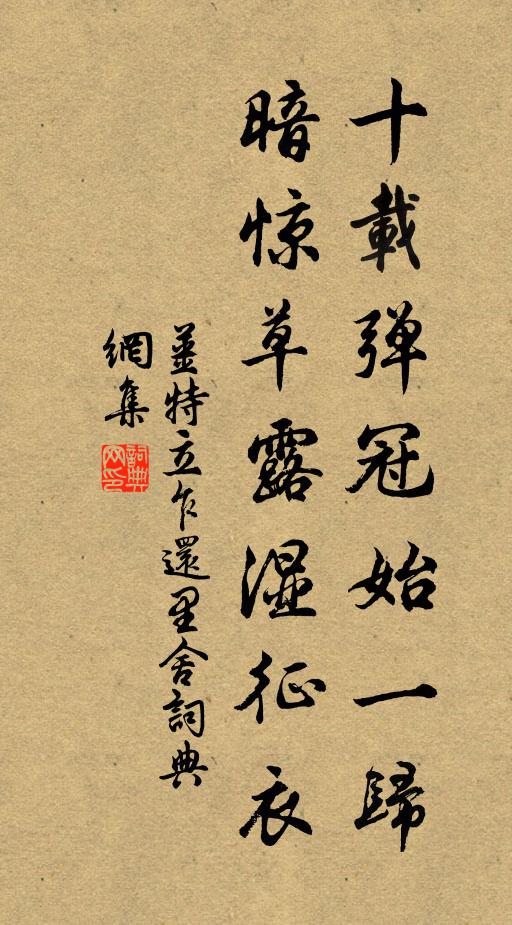 十載弹冠始一歸
暗惊草露湿征衣
姜特立乍還里舍詞典
網集
詞典網印